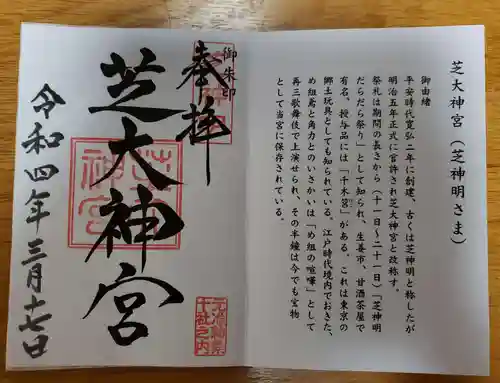 芝大神宮（芝神明さま）
御由緒
平安時代寛弘二年に創建、古くは芝神明と称したが
明治五年正式に官許され芝大神宮と改称す。
祭礼は期間の長さから（十一日～二十一日）「芝神明
だらだら祭り」として知られ、生姜市、甘酒茶屋で
有名、授与品には「千木筥」がある。これは東京の
郷土玩具としても知られている。江戸時代境内でおきた、
め組鳶と角力とのいさかいは「め組の喧嘩」として
再三歌舞伎で上演せられ、その半鐘は今でも宝物
として当宮に保存されている。
御朱印
奉拝
芝大神宮
令和四年三月十七日